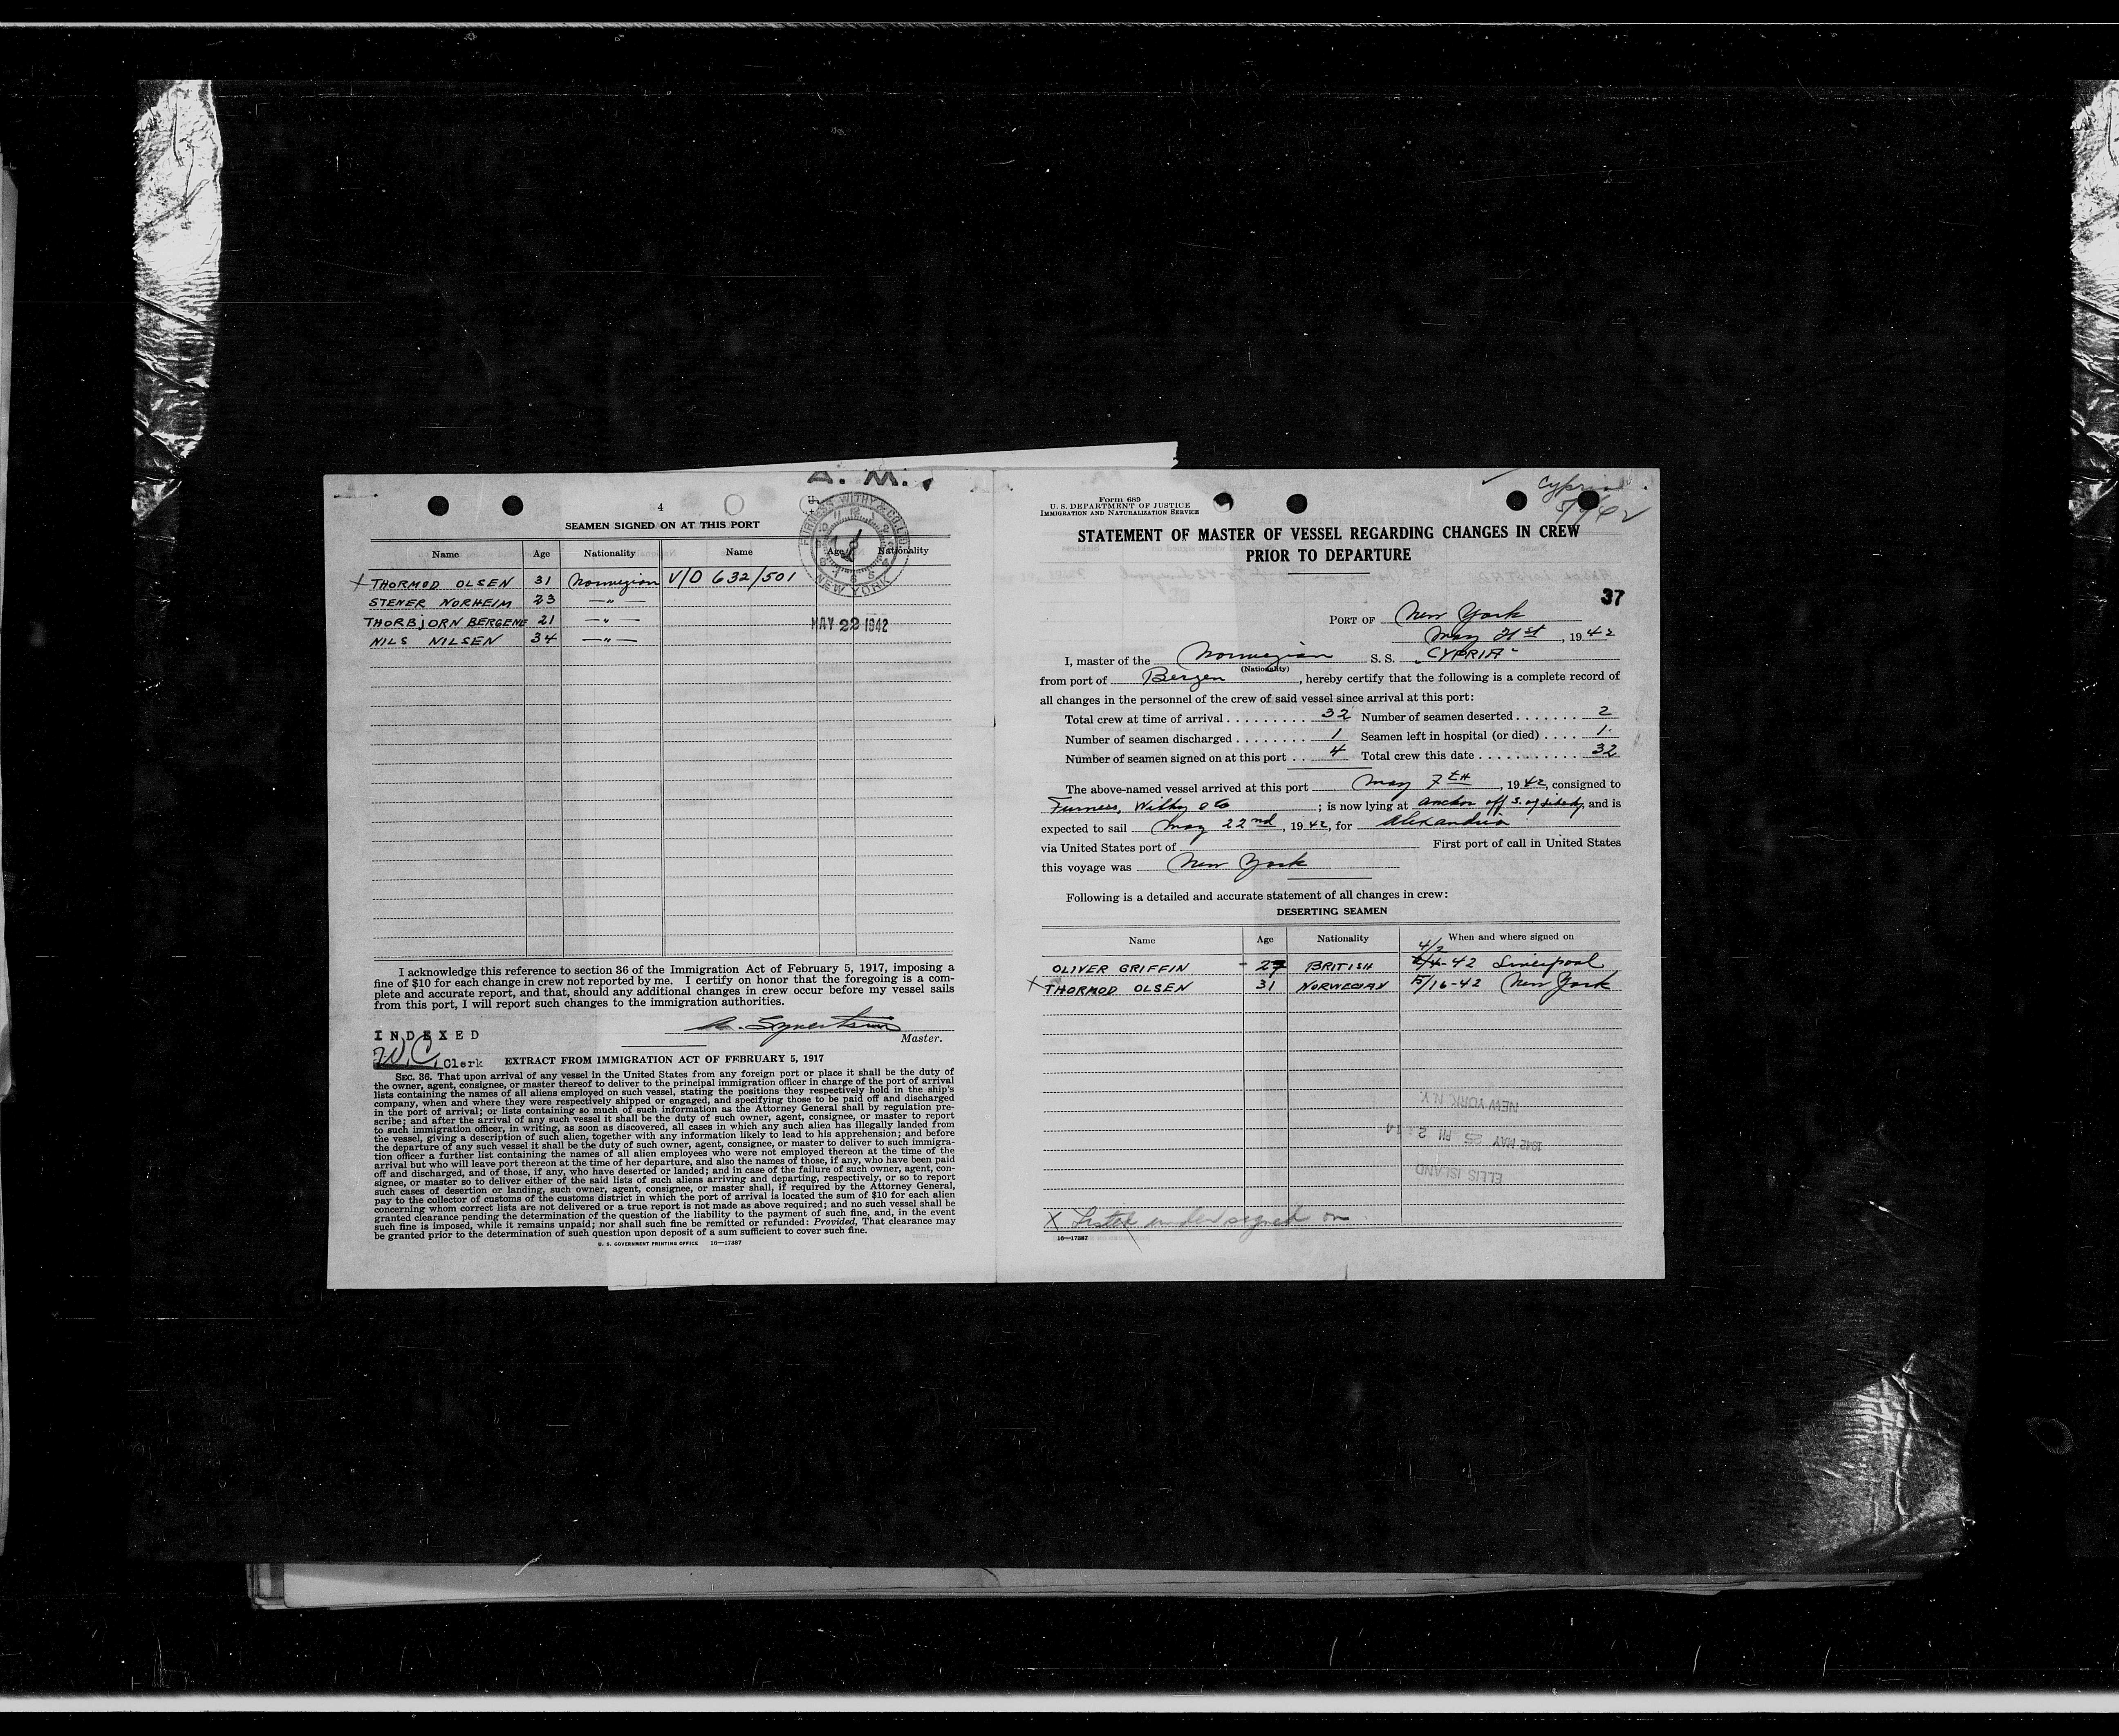 A. M.
4
SEAMEN SIGNED ON AT THIS PORT
FURNESS WITHY & CO. LTD.
NEW YORK
MAY 22 1942
Name Age Nationality Name Age Nationality
X THORMOD OLSEN 31 Norwegian V/O 632/501
STENER NORHEIM 23 —"—
THORBJORN BERGENE 21 —"—
NILS NILSEN 34 —"—
I acknowledge this reference to section 36 of the Immigration Act of February 5, 1917, imposing a
fine of $10 for each change in crew not reported by me. I certify on honor that the foregoing is a com-
plete and accurate report, and that, should any additional changes in crew occur before my vessel sails
from this port, I will report such changes to the immigration authorities.
Master.
INDEXED
W.C. Clerk
EXTRACT FROM IMMIGRATION ACT OF FEBRUARY 5, 1917
SEC. 36. That upon arrival of any vessel in the United States from any foreign port or place it shall be the duty of
the owner, agent, consignee, or master thereof to deliver to the principal immigration officer in charge of the port of arrival
lists containing the names of all aliens employed on such vessel, stating the positions they respectively hold in the ship's
company, when and where they were respectively shipped or engaged, and specifying those to be paid off and discharged
in the port of arrival; or lists containing so much of such information as the Attorney General shall by regulation pre-
scribe; and after the arrival of any such vessel it shall be the duty of such owner, agent, consignee, or master to report
to such immigration officer, in writing, as soon as discovered, all cases in which any such alien has illegally landed from
the vessel, giving a description of such alien, together with any information likely to lead to his apprehension; and before
the departure of any such vessel it shall be the duty of such owner, agent, consignee, or master to deliver to such immigra-
tion officer a further list containing the names of all alien employees who were not employed thereon at the time of the
arrival but who will leave port thereon at the time of her departure, and also the names of those, if any, who have been paid
off and discharged, and of those, if any, who have deserted or landed; and in case of the failure of such owner, agent, con-
signee, or master so to deliver either of the said lists of such aliens arriving and departing, respectively, or so to report
such cases of desertion or landing, such owner, agent, consignee, or master shall, if required by the Attorney General,
pay to the collector of customs of the customs district in which the port of arrival is located the sum of $10 for each alien
concerning whom correct lists are not delivered or a true report is not made as above required; and no such vessel shall be
granted clearance pending the determination of the question of the liability to the payment of such fine, and, in the event
such fine is imposed, while it remains unpaid; nor shall such fine be remitted or refunded: Provided, That clearance may
be granted prior to the determination of such question upon deposit of a sum sufficient to cover such fine.
U. S. GOVERNMENT PRINTING OFFICE 16—17387
Cypria
Form 689
U. S. DEPARTMENT OF JUSTICE
IMMIGRATION AND NATURALIZATION SERVICE
STATEMENT OF MASTER OF VESSEL REGARDING CHANGES IN CREW
PRIOR TO DEPARTURE
37
PORT OF New York
May 21st, 1942
I, master of the Norwegian S. S. "CYPRIA"
(Nationality)
from port of Bergen, hereby certify that the following is a complete record of
all changes in the personnel of the crew of said vessel since arrival at this port:
Total crew at time of arrival 32 Number of seamen deserted 2
Number of seamen discharged 1 Seamen left in hospital (or died) 1
Number of seamen signed on at this port 4 Total crew this date 32
The above-named vessel arrived at this port May 7TH, 1942, consigned to
Furness, Withy & Co; is now lying at anchor off S. of Liberty, and is
expected to sail May 22nd, 1942, for Alexandria
via United States port of First port of call in United States
this voyage was New York
Following is a detailed and accurate statement of all changes in crew:
DESERTING SEAMEN
Name Age Nationality When and where signed on
4/2
OLIVER GRIFFIN 27 BRITISH -42 Liverpool
X THORMOD OLSEN 31 NORWEGIAN 5/16-42 New York
NEW YORK N.Y.
1942 MAY 25 PM 2 14
ELLIS ISLAND
X Listed under signed on
16—17387